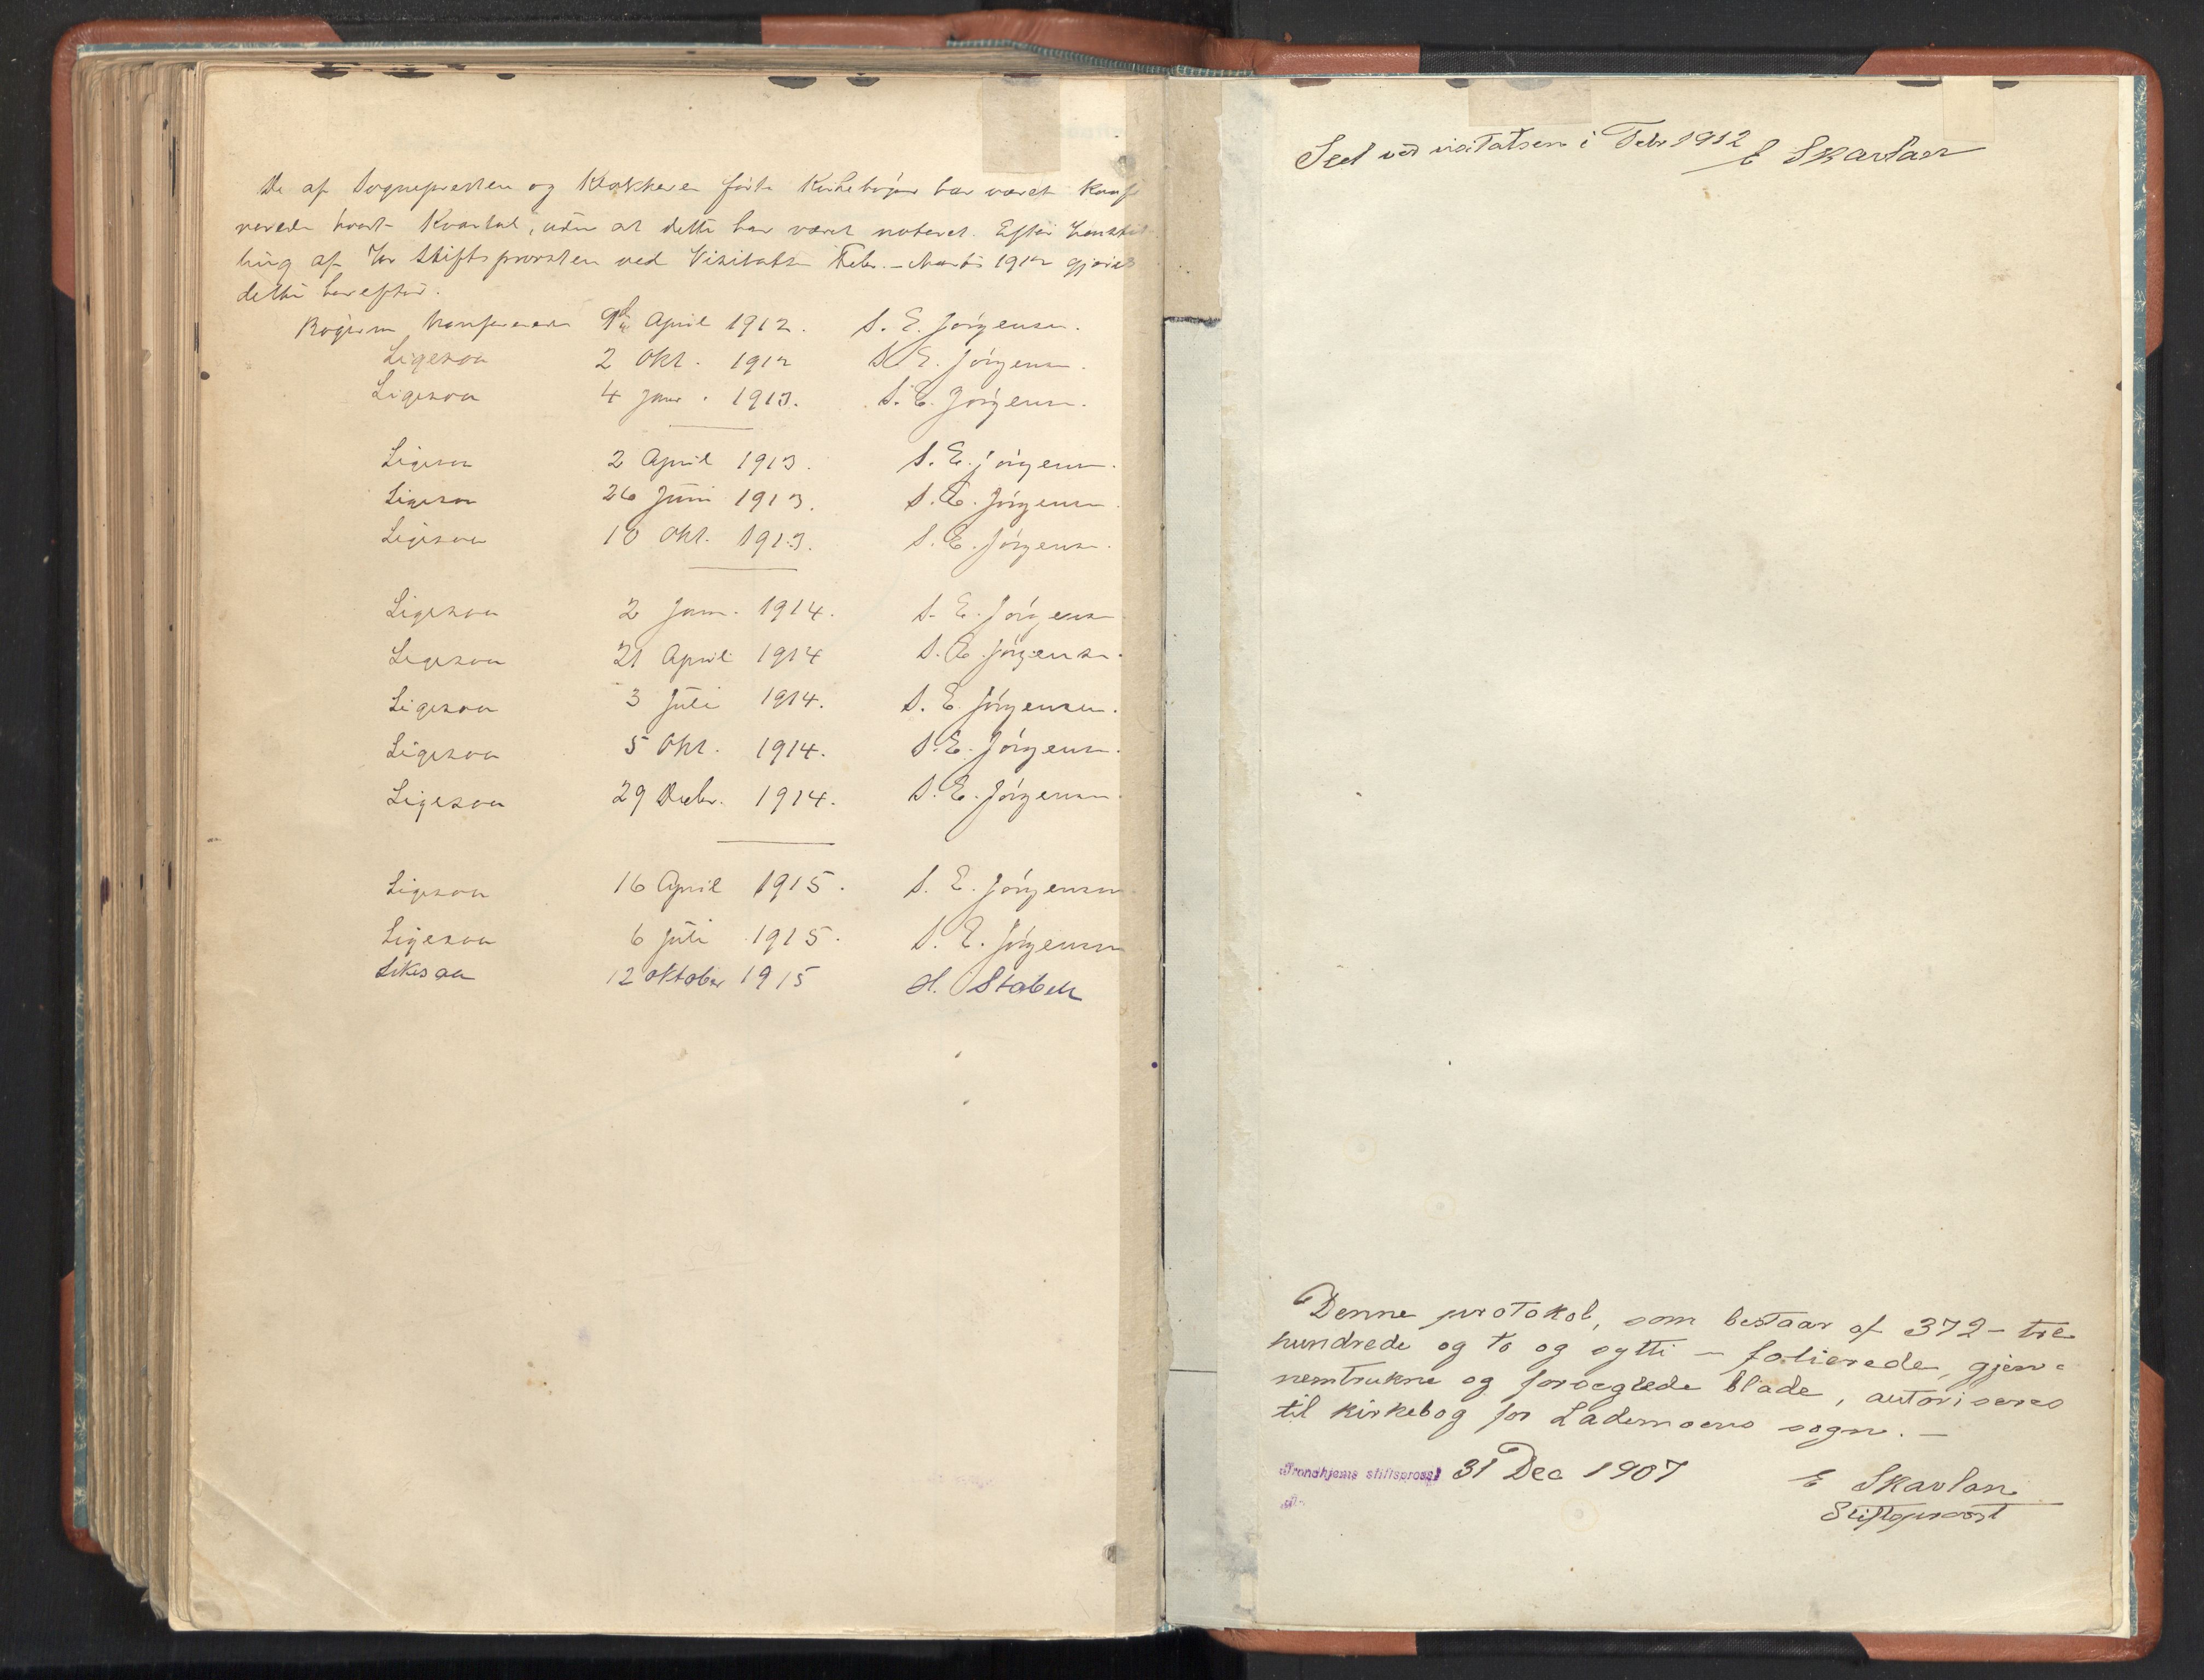 De af Sognepresten og Klokkeren førte Kirkebøger har været konfe
rerede hvert Kvartal, uden at dette har været noteret. Efter Henstil-
ling af Hr Stiftsprovsten ved Visitatsen Febr. – Marts 1912 gjøres
dette herefter.
Bøgerne konfererede 9de April 1912. S. E. Jörgensen.
Ligesaa 2 Okt. 1912 S. E. Jörgensen.
Ligesaa 4 Janr. 1913. S. E. Jörgensen.
Ligesaa 2 April 1913. S. E. Jörgensen.
Ligesaa 26 Juni 1913. S. E. Jörgensen.
Ligesaa 10 Okt. 1913. S. E. Jörgensen.
Ligesaa 2 Jan. 1914. S. E. Jörgensen
Ligesaa 21 April 1914 S. E. Jörgensen.
Ligesaa 3 Juli 1914. S. E. Jörgensen.
Ligesaa 5 Okt. 1914. S. E. Jörgensen.
Ligesaa 29 Decbr. 1914. S. E. Jörgensen.
Ligesaa 16 April 1915. S. E. Jörgensen
Ligesaa 6 Juli 1915. S. E. Jörgensen
Likesaa 12 oktober 1915 H. Stabell
Seet ved visitatsen i Febr 1912 E Skavlan
Denne protokol, som bestaar af 372 – tre
hundrede og to og sytti – folierede, gjen-
nemtrukne og forseglede blade, autoriseres
til kirkebog for Lademoens sogn. –
Trondhjems stiftsprosti 31 Dec 1907
E Skavlan
Stiftsprovst